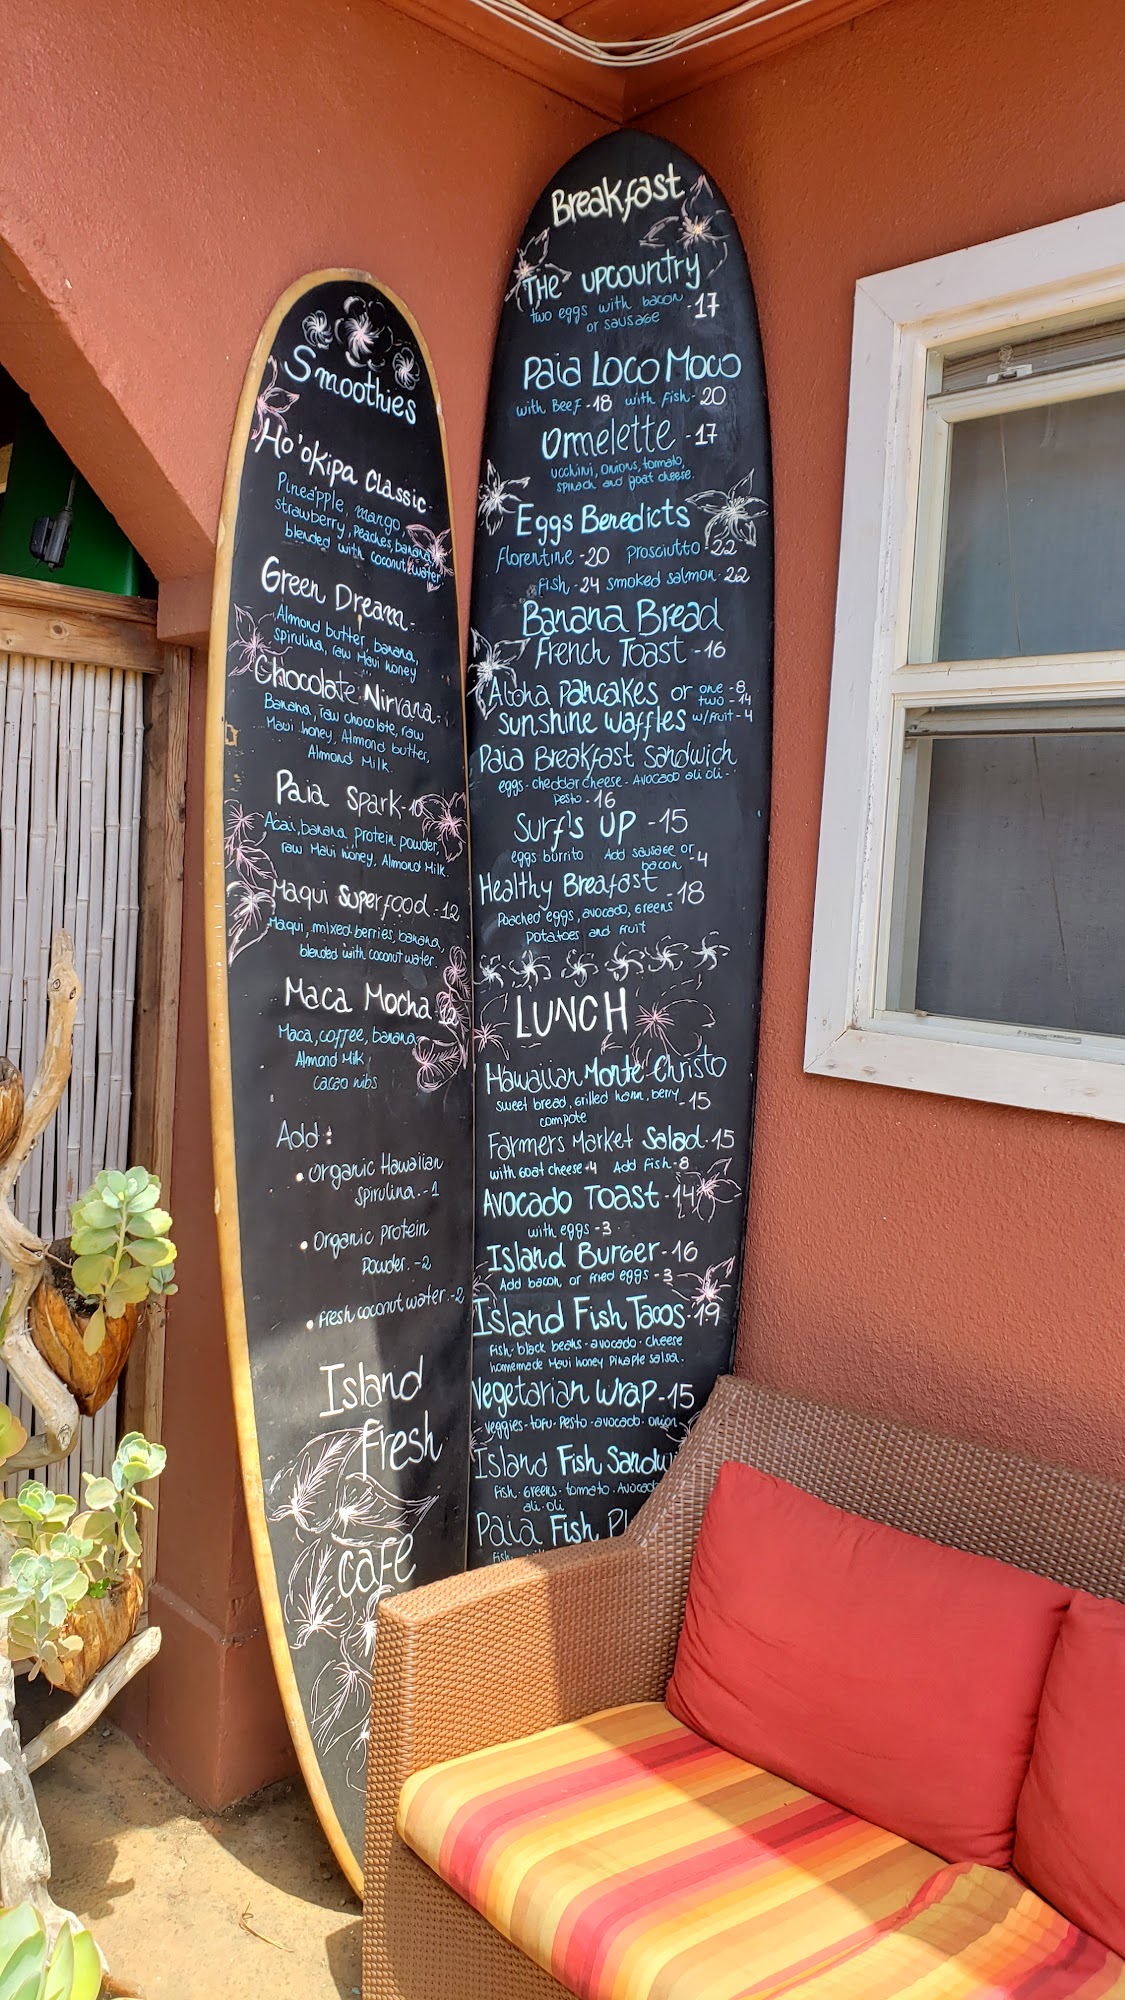 Smoothies
Ho'okipa Classic-
Pineapple, mango,
strawberry, Peaches, banana,
blended with coconut water
Green Dream-
Almond butter, banana,
spirulina, raw Maui honey
Chocolate Nirvana-
Banana, raw chocolate, raw
Maui honey, Almond butter,
Almond Milk.
Paia Spark-10
Acai, banana, protein powder,
raw Maui honey, Almond Milk.
Maqui Superfood-12
Maqui, mixed berries, banana,
blended with coconut water.
Maca Mocha
Maca, coffee, banana
Almond Milk
cacao nibs
Add:
• Organic Hawaiian
Spirulina.-1
• Organic Protein
Powder.-2
• fresh coconut water.-2
Island
fresh
cafe
Breakfast
THE UPCOUNTRY
two eggs with bacon -17
or sausage
Paia LOCO MOCO
with Beef-18 with fish-20
Ormelette-17
ucchini, onions, tomato,
spinach and goat cheese.
Eggs Benedicts
florentine-20 prosciutto-22
fish-24 smoked salmon-22
Banana Bread
French Toast -16
Aloha pancakes or one-8
two-14
sunshine waffles w/fruit-4
Paia Breakfast Sandwich
eggs-cheddar cheese-Avocado ali oli-
Pesto-16
Surf's UP -15
eggs burrito Add sausage or
bacon -4
Healthy Breafast -18
Poached eggs, avocado, Greens
potatoes and fruit
LUNCH
Hawaiian Monte Christo
sweet bread, grilled ham, berry -15
compote
Farmers Market Salad-15
with Goat cheese-4 Add fish-8
AVOCADO TOAST-14
with eggs-3
Island Burger-16
Add bacon or fried eggs-3
Island Fish Tacos-19
Fish-black beans-avocado-cheese
homemade Maui honey Pinaple salsa.
Vegetarian Wrap-15
Veggies-tofu-Pesto-avocado-onion
Island Fish Sandwi
Fish-Greens-tomato-Avocado
ali-oli
Paia Fish Pl